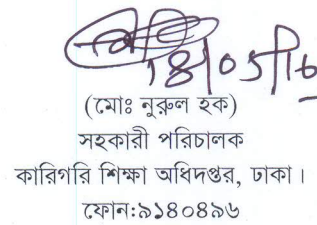 18/05/16
(মোঃ নুরুল হক)
সহকারী পরিচালক
কারিগরি শিক্ষা অধিদপ্তর, ঢাকা।
ফোন:৯১৪০৪৯৬